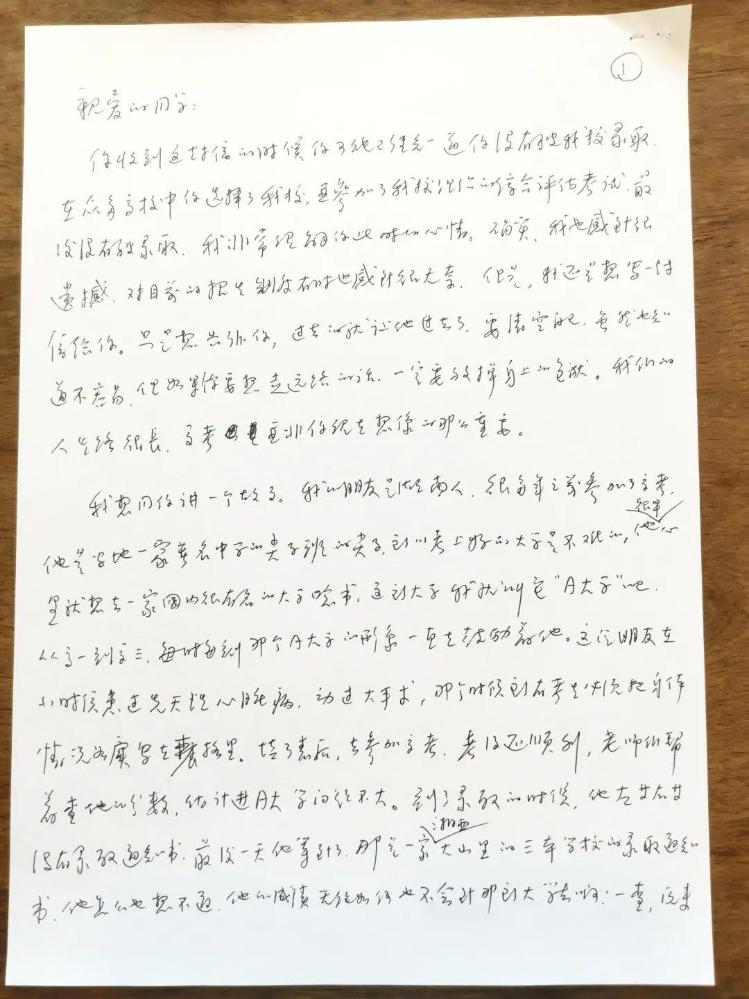 ①
亲爱的同学：
你收到这封信的时候你可能已经知道你没有被我校录取.
在众多高校中你选择了我校,且参加了我校组织的综合评估考试.最
后没有被录取.我非常理解你此时的心情,确实,我也感到很
遗撼,对目前的招生制度有时也感到很无奈.但是,我还是想写一封
信给你。只是想告诉你,过去的就让他过去了.要清空自己.虽然也知
道不容易,但如果你要想走远路的话,一定要放掉身上的包袱。我们的
人生路很长,高考并非你现在想像的那么重要。
我想同你讲一个故事。我的朋友是湖南人,很多年之前参加了高考.
很早
他是当地一家著名中学的尖子班的尖子,所以考上好的大学是不难的,他心
里就想去一家国内很有名的大学唸书,这所大学我就叫它"A大学"吧.
从高一到高三,每时每刻那个A大学的形象一直在鼓励着他。这位朋友在
小时候患过先天性心脏病,动过大手术,那个时候所有考生必须把身体
情况如实写在表格里。填了表后,去参加高考.考得还顺利,老师们帮
着查他的分数,估计进A大学问题不大。到了录取的时候,他左等右等
湘西
没有录取通知书.最后一天他等到了.那是一家大山里的三本学校的录取通知
书.他怎么也想不通,他的成绩无论如何也不会到那所大学去啊!一查,后来